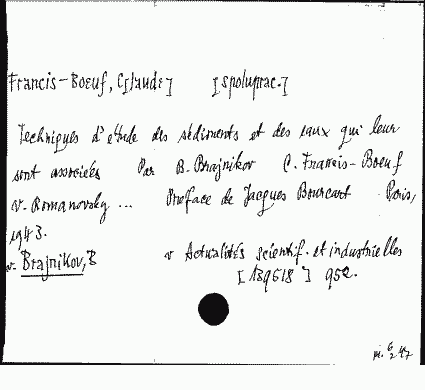 Francis-Boeuf, C[laude] [spoluprac.]
Techniques d'étude des sédiments et des eaux qui leur
sont associées Par B. Brajnikov C. Francis-Boeuf
V. Romanovsky ... Préface de Jacques Bourcart Paris,
1943.
v. Brajnikov, B v Actualités scientif. et industrielles
[139618] 952.